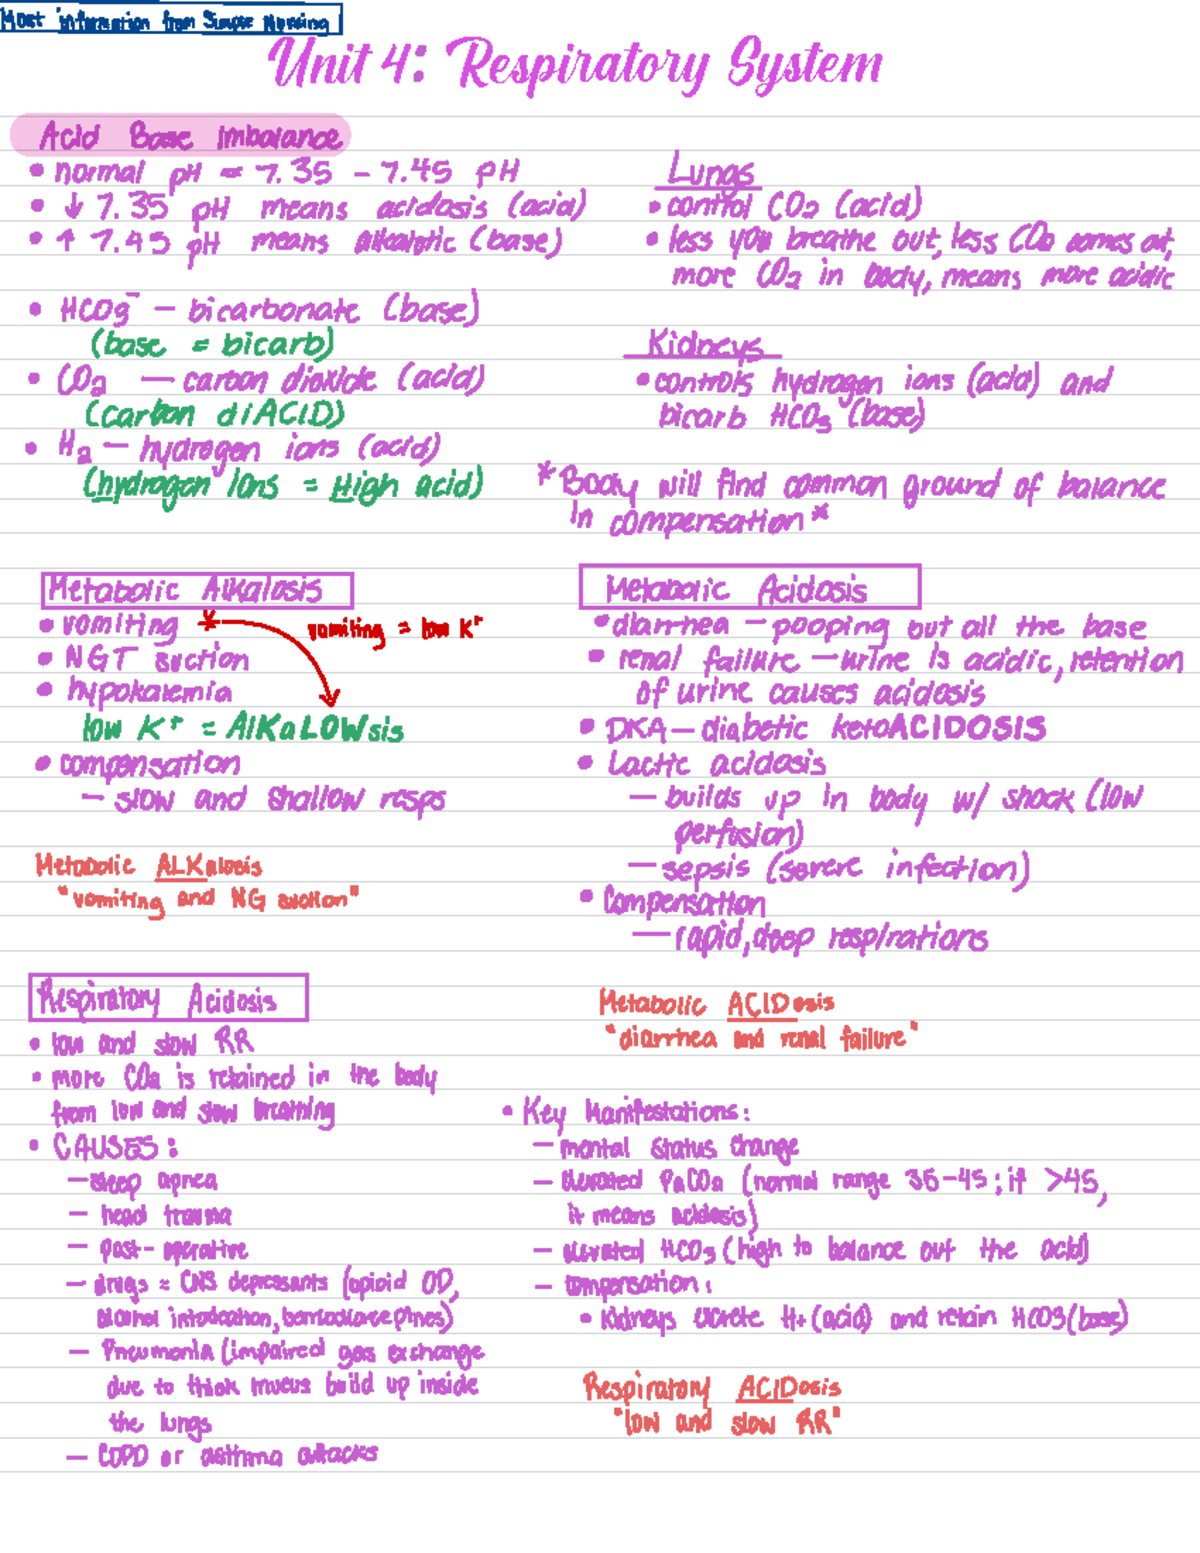 Most information from Simple Nursing
Unit 4: Respiratory System
Acid Base Imbalance
• normal pH = 7.35 - 7.45 pH
• ↓ 7.35 pH means acidosis (acid)
• ↑ 7.45 pH means alkalotic (base)
• HCO3⁻ — bicarbonate (base)
(base = bicarb)
• CO2 — carbon dioxide (acid)
(carbon diACID)
• H2 — hydrogen ions (acid)
(hydrogen Ions = High acid)
Lungs
• control CO2 (acid)
• less you breathe out, less CO2 comes out,
more CO2 in body, means more acidic
Kidneys
• controls hydrogen ions (acid) and
bicarb HCO3 (base)
*Body will find common ground of balance
in compensation*
Metabolic Alkalosis
• vomiting * vomiting = low K+
• NGT suction
• hypokalemia
low K+ = AlKaLOWsis
• compensation
— slow and shallow resps
Metabolic ALKalosis
"vomiting and NG suction"
Metabolic Acidosis
• diarrhea — pooping out all the base
• renal failure — urine is acidic, retention
of urine causes acidosis
• DKA — diabetic ketoACIDOSIS
• Lactic acidosis
— builds up in body w/ shock (low
perfusion)
— sepsis (severe infection)
• Compensation
— rapid, deep respirations
Metabolic ACIDosis
"diarrhea and renal failure"
Respiratory Acidosis
• low and slow RR
• more CO2 is retained in the body
from low and slow breathing
• CAUSES:
— sleep apnea
— head trauma
— post-operative
— drugs = CNS depressants (opioid OD,
alcohol intoxication, benzodiazepines)
— Pneumonia (impaired gas exchange
due to thick mucus build up inside
the lungs
— COPD or asthma attacks
• Key Manifestations:
— mental status change
— elevated PaCO2 (normal range 35-45; if >45,
it means acidosis)
— elevated HCO3 (high to balance out the acid)
— compensation:
• Kidneys excrete H+ (acid) and retain HCO3 (base)
Respiratory ACIDosis
"low and slow RR"